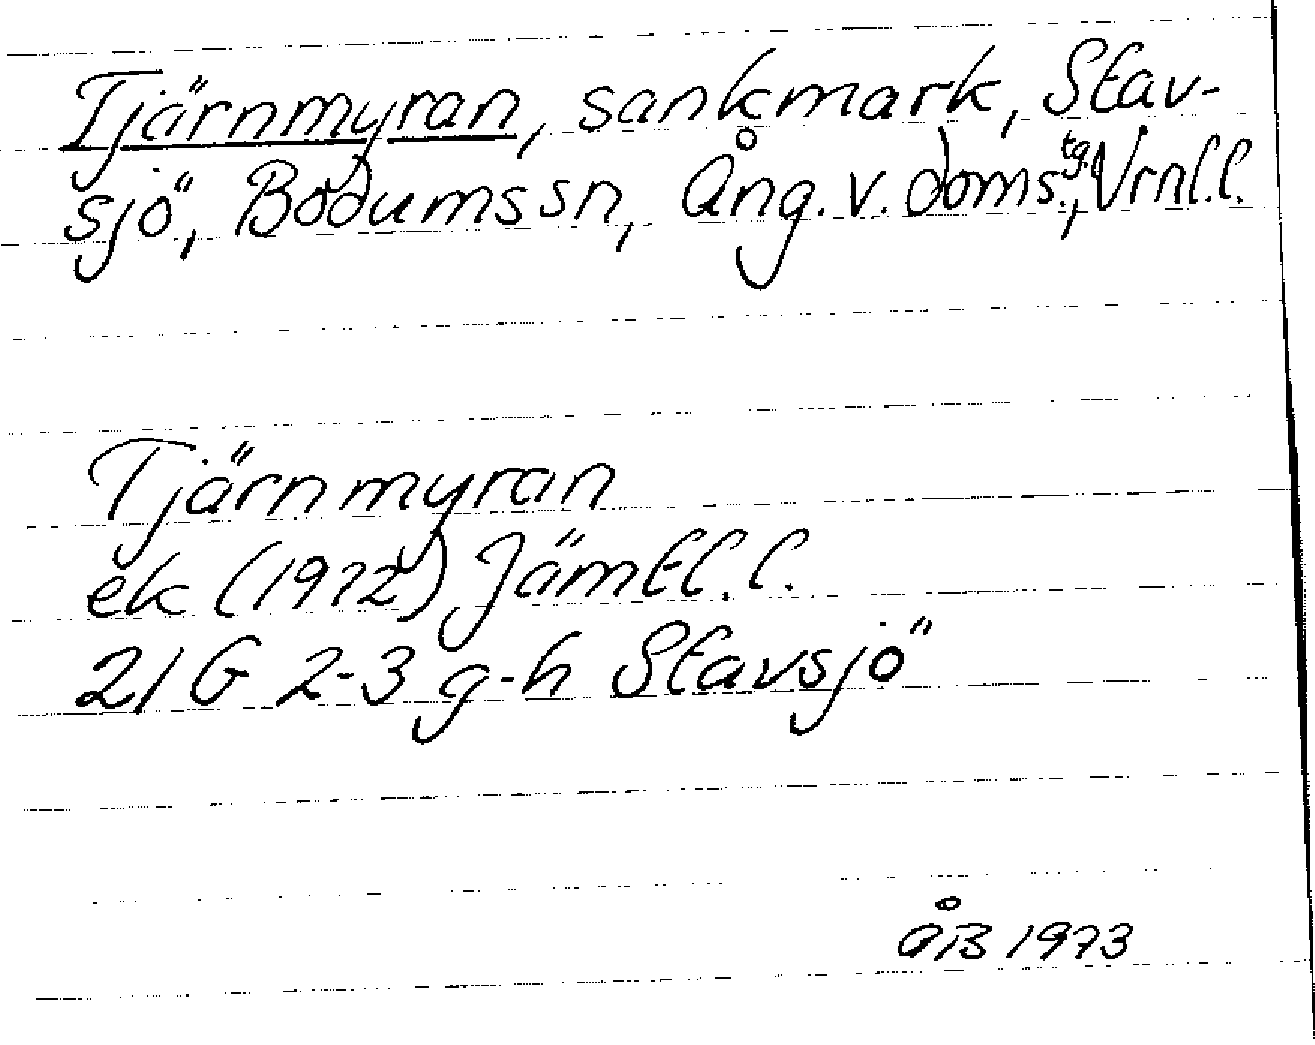 Tjärnmyran, sankmark, Stav-
sjö, Bodums sn, Ång. v. doms.tg., Vrnl.l.
Tjärnmyran
ek (1972) Jämtl. l.
21 G 2-3 g-h Stavsjö
ÅB 1973